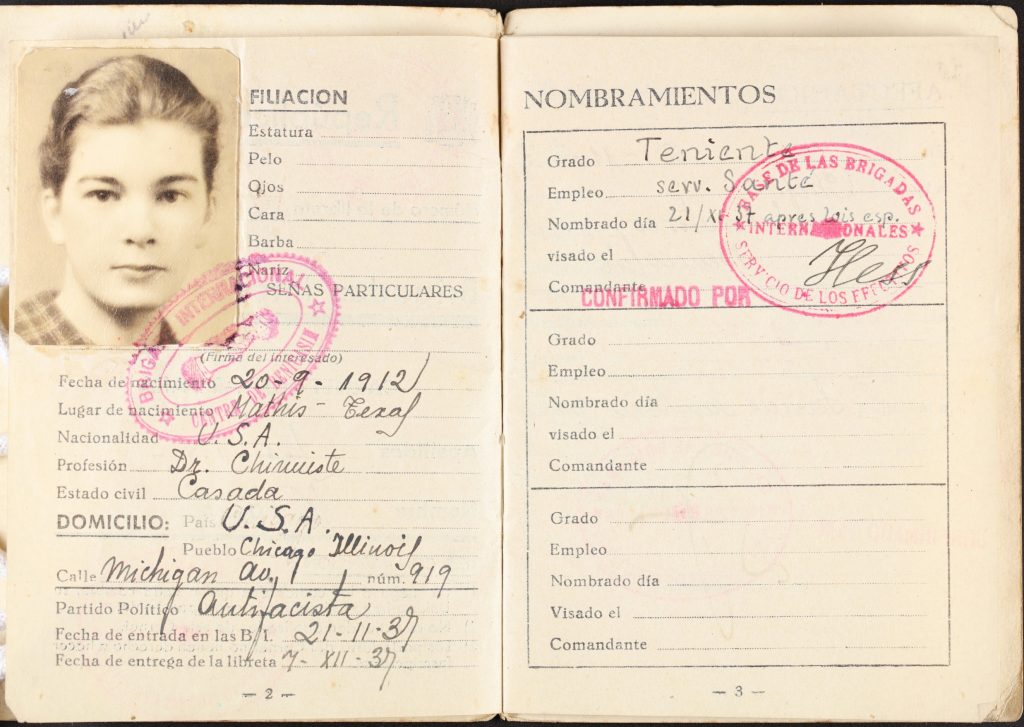 FILIACION
Estatura
Pelo
Ojos
Cara
Barba
Nariz
SEÑAS PARTICULARES
BRIGADA INTERNACIONAL
(Firma del interesado)
Fecha de nacimiento 20-9-1912
Lugar de nacimiento Mathis - Texas
Nacionalidad U.S.A.
Profesión Dr. Chimiste
Estado civil Casada
DOMICILIO: País U.S.A.
Pueblo Chicago Illinois
Calle Michigan Av. núm. 919
Partido Político Antifacista
Fecha de entrada en las B. I. 21-11-37
Fecha de entrega de la libreta 7-XII-37
— 2 —
NOMBRAMIENTOS
Grado Teniente
Empleo serv. Santé
Nombrado día 21/XI-37 apres esp.
visado el
Comandante
CONFIRMADO POR
BASE DE LAS BRIGADAS
INTERNACIONALES
SERVICIO DE LOS EFECTIVOS
Grado
Empleo
Nombrado día
visado el
Comandante
Grado
Empleo
Nombrado día
Visado el
Comandante
— 3 —